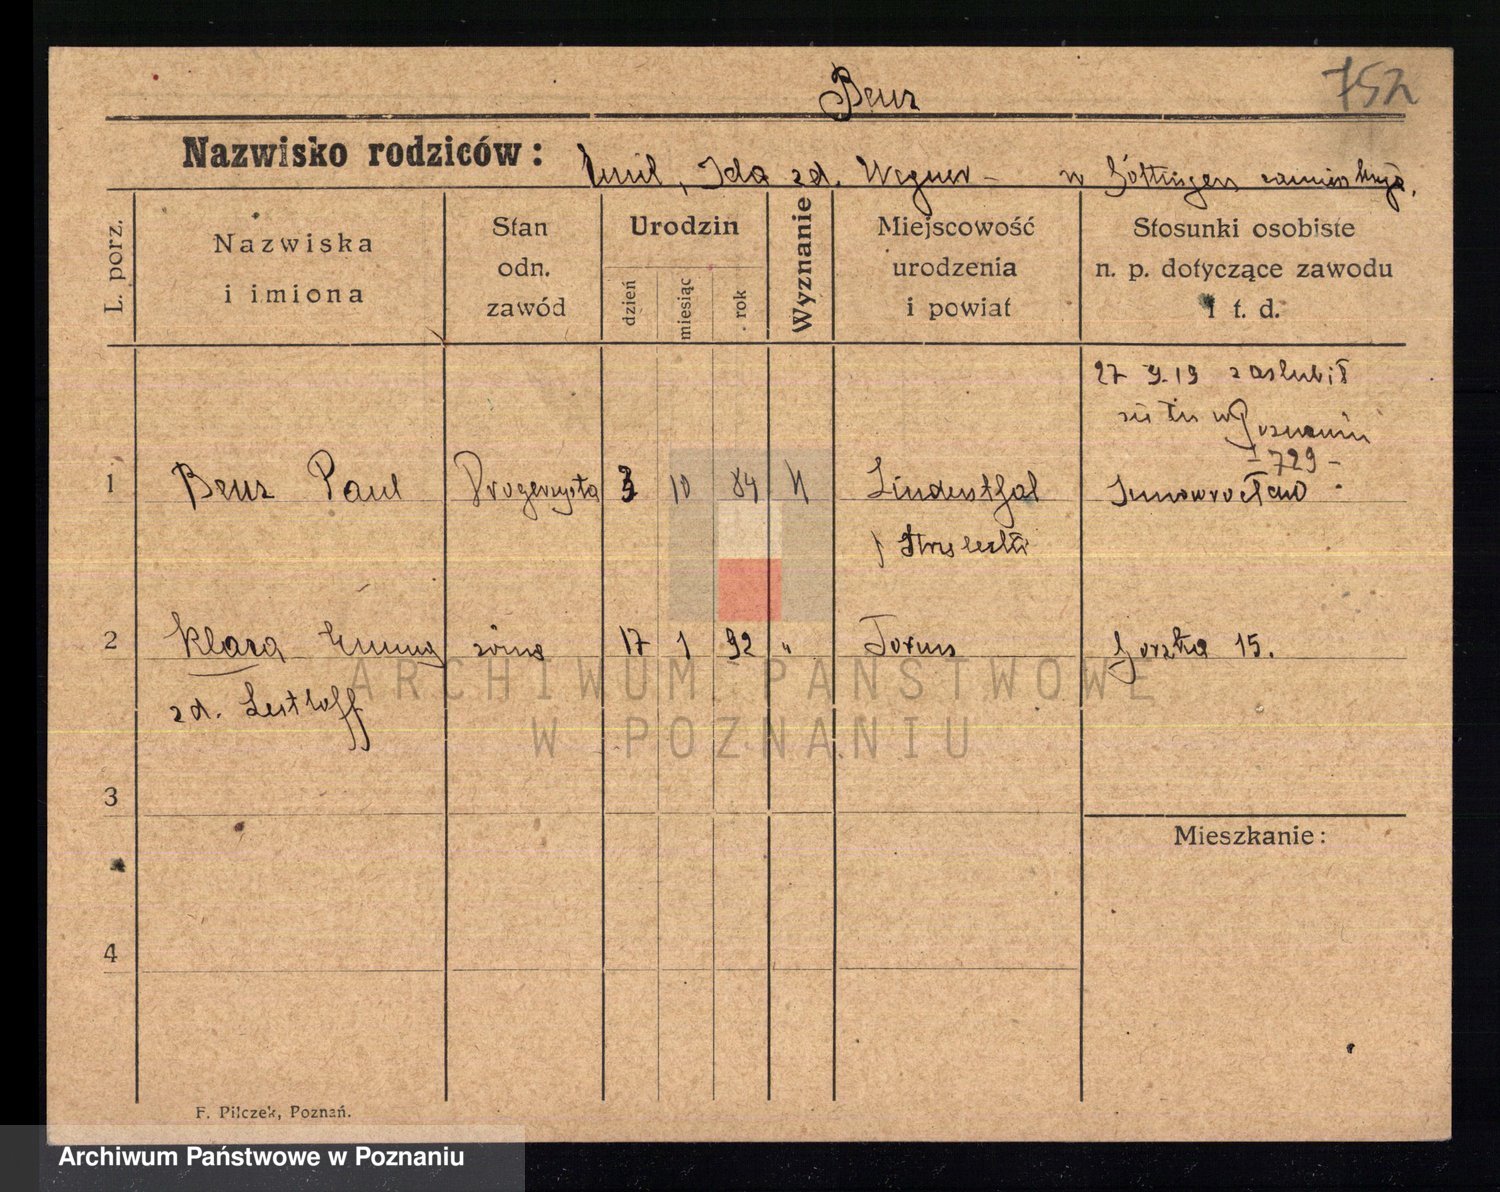 752
Benz
Nazwisko rodziców: Emil, Ida zd. Wegner – w Göttingen zamieszkują.
L. porz.
Nazwiska i imiona
Stan odn. zawód
Urodzin
dzień
miesiąc
rok
Wyznanie
Miejscowość urodzenia i powiat
Stosunki osobiste n. p. dotyczące zawodu i t. d.
27 9.19 zaślubił
się tu w Poznaniu
I 729 –
1 Benz Paul Drogerzysta 3 10 84 N Lindenthal Inowrocław
p
2 Klara Emma żona 17 1 92 " Toruń Gorzka 15.
zd.
3
Mieszkanie:
4
F. Pilczek, Poznań.
ARCHIWUM PAŃSTWOWE
W POZNANIU
Archiwum Państwowe w Poznaniu